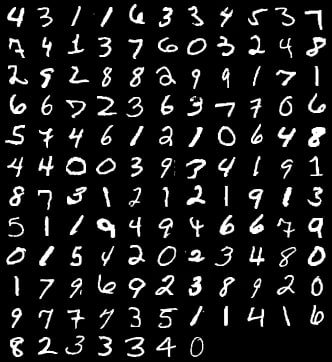 4 3 1 1 6 3 3 4 5 3 7
7 4 1 3 7 6 0 3 2 4 8
2 9 2 8 8 2 9 9 1 7 1
6 6 7 2 3 6 3 7 7 0 6
5 7 4 6 1 2 1 0 6 4 8
4 4 0 0 3 9 3 4 1 9 1
8 7 3 1 2 1 2 1 9 1 3
5 1 1 9 4 9 4 6 6 7 9
0 1 5 4 2 0 2 3 4 8 0
1 7 9 6 9 2 3 8 9 2 0
9 7 7 7 3 5 1 1 4 1 6
8 2 3 3 3 4 0